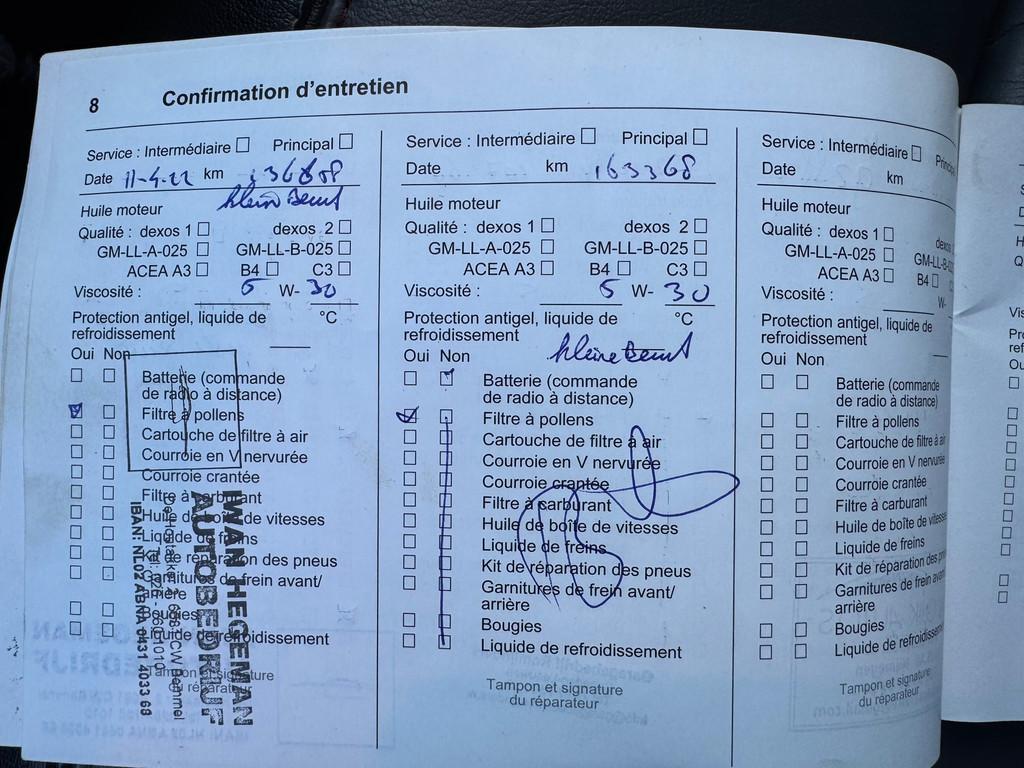 8 Confirmation d'entretien
Service : Intermédiaire Principal
Date 11-4-22 km
klein Beurt
Huile moteur
Qualité : dexos 1 dexos 2
GM-LL-A-025 GM-LL-B-025
ACEA A3 B4 C3
Viscosité : 5 W- 30
Protection antigel, liquide de
refroidissement °C
Oui Non
Batterie (commande
de radio à distance)
Filtre à pollens
Cartouche de filtre à air
Courroie en V nervurée
Courroie crantée
Filtre à carburant
Huile de boîte de vitesses
Liquide de freins
Kit de réparation des pneus
Garnitures de frein avant/
arrière
Bougies
Liquide de refroidissement
Tampon et signature
du réparateur
IWAN HEGEMAN
AUTOBEDRIJF
CW Bemmel
IBAN: NL02 ABNA 0431 4033 68
Service : Intermédiaire Principal
Date km 163368
Huile moteur
Qualité : dexos 1 dexos 2
GM-LL-A-025 GM-LL-B-025
ACEA A3 B4 C3
Viscosité : 5 W- 30
Protection antigel, liquide de
refroidissement °C
Oui Non kleine Beurt
Batterie (commande
de radio à distance)
Filtre à pollens
Cartouche de filtre à air
Courroie en V nervurée
Courroie crantée
Filtre à carburant
Huile de boîte de vitesses
Liquide de freins
Kit de réparation des pneus
Garnitures de frein avant/
arrière
Bougies
Liquide de refroidissement
Tampon et signature
du réparateur
Service : Intermédiaire
Date km
Huile moteur
Qualité : dexos 1
GM-LL-A-025
ACEA A3 B4
Viscosité : W-
Protection antigel, liquide de
refroidissement
Oui Non
Batterie (commande
de radio à distance)
Filtre à pollens
Cartouche de filtre à air
Courroie en V nervurée
Courroie crantée
Filtre à carburant
Huile de boîte de vitesses
Liquide de freins
Kit de réparation des pneus
Garnitures de frein avant/
arrière
Bougies
Liquide de refroidissement
Tampon et signature
du réparateur